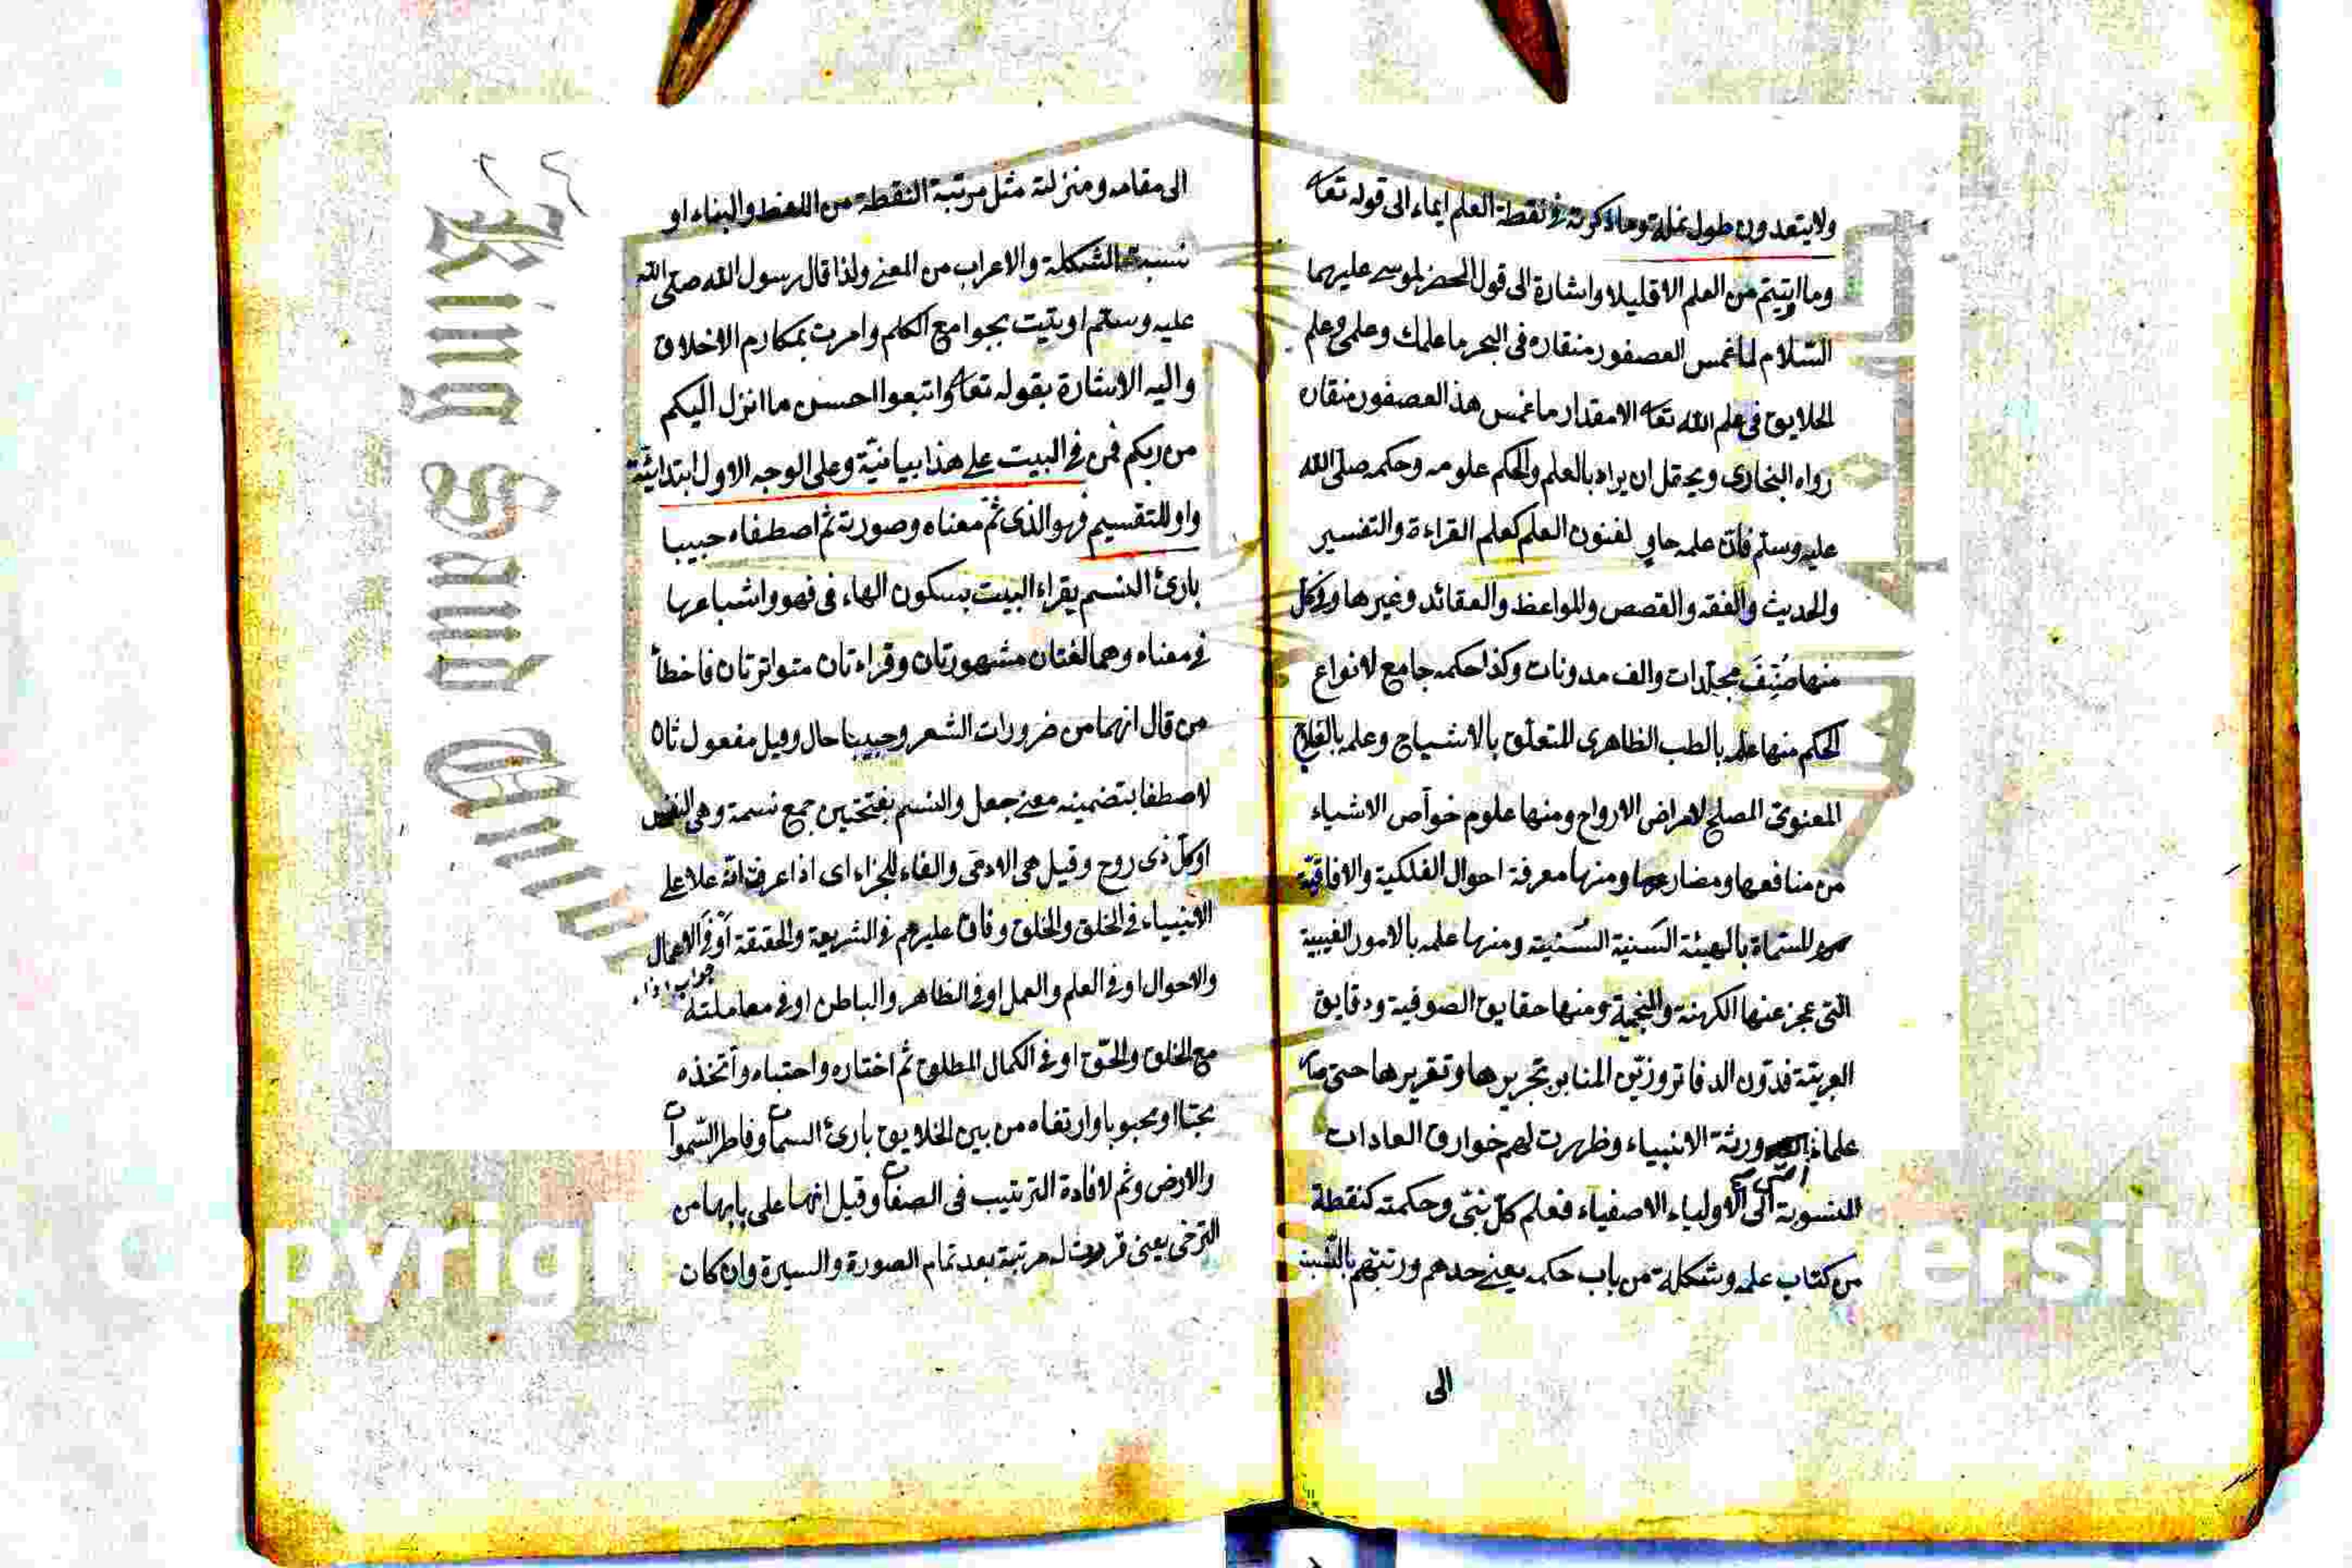 ولايتعدون طول نملة وما ذكرته في نقطة العلم ايماء الى قوله تعا
وما اوتيتم من العلم الا قليلا واشارة الى قول الخضر لموسى عليهما
السلام لما غمس العصفور منقاره فى البحر ما علمك وعلمى وعلم
الخلايق فى علم الله تعا الا مقدار ما غمس هذ العصفور منقاره
رواه البخارى ويحتمل ان يراد بالعلم والحكم علومه وحكمه صلى الله
عليه وسلم فان علمه حاوي لفنون العلم كعلم القراءة والتفسير
والحديث والفقه والقصص والمواعظ والعقائد وغيرها وفى كل
منها صُنِّفَ مجلدات والف مدونات وكذا حكمه جامع لانواع
الحكم منها علمه بالطب الظاهرى المتعلق بالاشباح وعلمه
المعنوى المصلح لامراض الارواح ومنها علوم خواص الاشياء
من منافعها ومضارها ومنها معرفة احوال الفلكية والافاقية
المسماة بالهيئة السنية السنية ومنها علمه بالامور الغيبية
التى عجز عنها الكهنة والمنجمة ومنها حقايق الصوفية ودقايق
العربية فدون الدفاتر وزين المنابر بتحريرها وتقريرها حتى
علماء ورثة الانبياء وظهرت لهم خوارق العادات
المنسوبة الى الاولياء الاصفياء فعلم كل نبى وحكمته كنقطة
من كتاب علمه وشكلة من باب حكمه يعنى حدهم ورتبتهم بالنسبة
الى
الى مقامه ومنزلته مثل مرتبة النقطة من اللفظ والبناء او
نسبة الشكلة والاعراب من المعنى ولذا قال رسول الله صلى الله
عليه وسلم اوتيت بجوامع الكلم وامرت بمكارم الاخلاق
واليه الاشارة بقوله تعا واتبعوا احسن ما انزل اليكم
من ربكم فمن في البيت على هذا بيانية وعلى الوجه الاول ابتدائية
واو للتقسيم فهو الذى تم معناه وصورته ثم اصطفاه حبيبا
بارئ النسم يقراء البيت بسكون الهاء فى فهو واشباعها
في معناه وهما لغتان مشهورتان وقراءتان متواترتان فاخطأ
من قال انهما من ضرورات الشعر وحبيبا حال وقيل مفعول ثان
لاصطفا بتضمينه معنى جعل والنسم بفتحتين جمع نسمة وهى النفس
او كل ذى روح وقيل هى الادمى والفاء للجزاء اى اذا عرفت انه علا على
الانبياء فى الخلق والخلق وفاق عليهم فى الشريعة والحقيقة أو فى الاعمال
والاحوال او فى العلم والعمل او فى الظاهر والباطن او فى معاملته
جواب اذا
مع الخلق والحق او فى الكمال المطلق ثم اختاره واجتباه واتخذه
محبا او محبوبا وارتضاه من بين الخلايق بارئ السمات وفاطر السموات
والارض وثم لافادة الترتيب فى الصفات وقيل انها على بابها من
التراخى يعنى له مرتبة بعد تمام الصورة والسيرة وان كان
King Saud Univ
Copyrigh
ersity